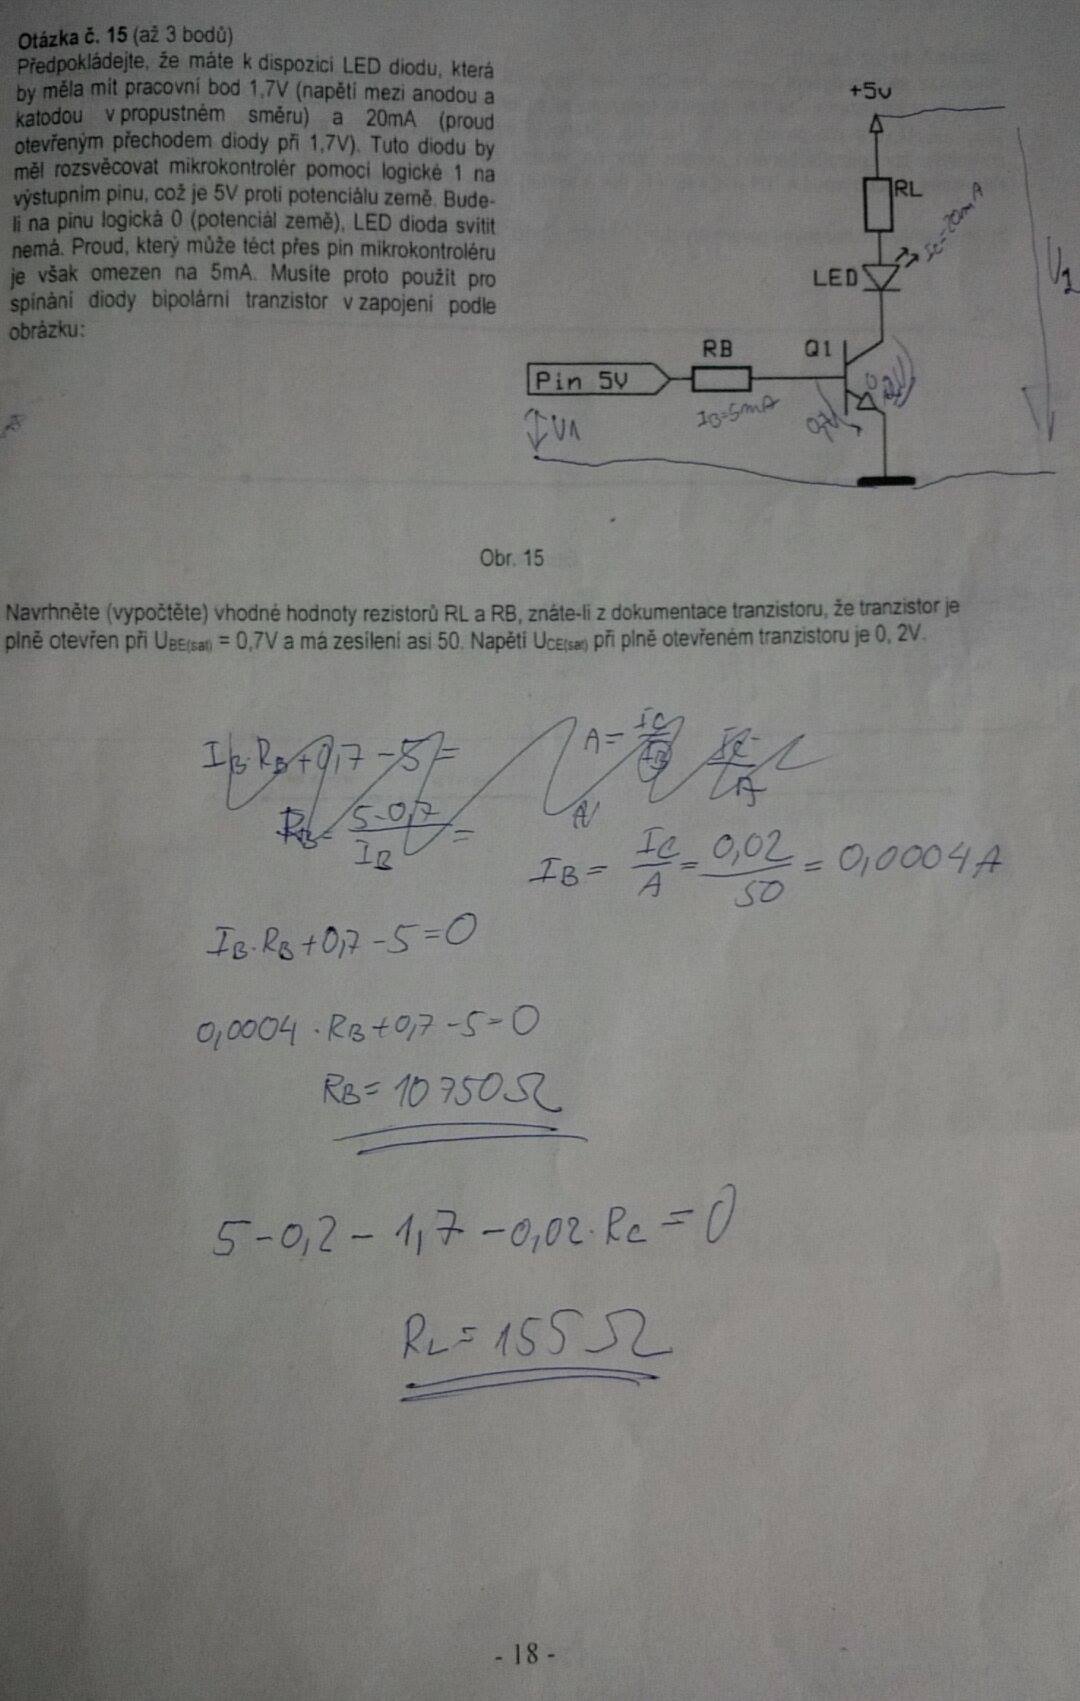 Otázka č. 15 (až 3 bodů)
Předpokládejte, že máte k dispozici LED diodu, která
by měla mít pracovní bod 1,7V (napětí mezi anodou a
katodou v propustném směru) a 20mA (proud
otevřeným přechodem diody při 1,7V). Tuto diodu by
měl rozsvěcovat mikrokontrolér pomocí logické 1 na
výstupním pinu, což je 5V proti potenciálu země. Bude-
li na pinu logická 0 (potenciál země), LED dioda svítit
nemá. Proud, který může téct přes pin mikrokontroléru
je však omezen na 5mA. Musíte proto použít pro
spínání diody bipolární tranzistor v zapojení podle
obrázku:
+5v
RL
Ic=20mA
LED
U2
RB
Q1
Pin 5V
IB=5mA
0,7V
U1
Obr. 15
Navrhněte (vypočtěte) vhodné hodnoty rezistorů RL a RB, znáte-li z dokumentace tranzistoru, že tranzistor je
plně otevřen při UBE(sat) = 0,7V a má zesílení asi 50. Napětí UCE(sat) při plně otevřeném tranzistoru je 0, 2V.
IB·RB+0,7-5=
RB= 5-0,7 / IB =
A= IC / IB
IC / A
IB= IC / A = 0,02 / 50 = 0,0004A
IB·RB+0,7-5=0
0,0004·RB+0,7-5=0
RB=10750Ω
5-0,2-1,7-0,02·RC=0
RL=155Ω
- 18 -